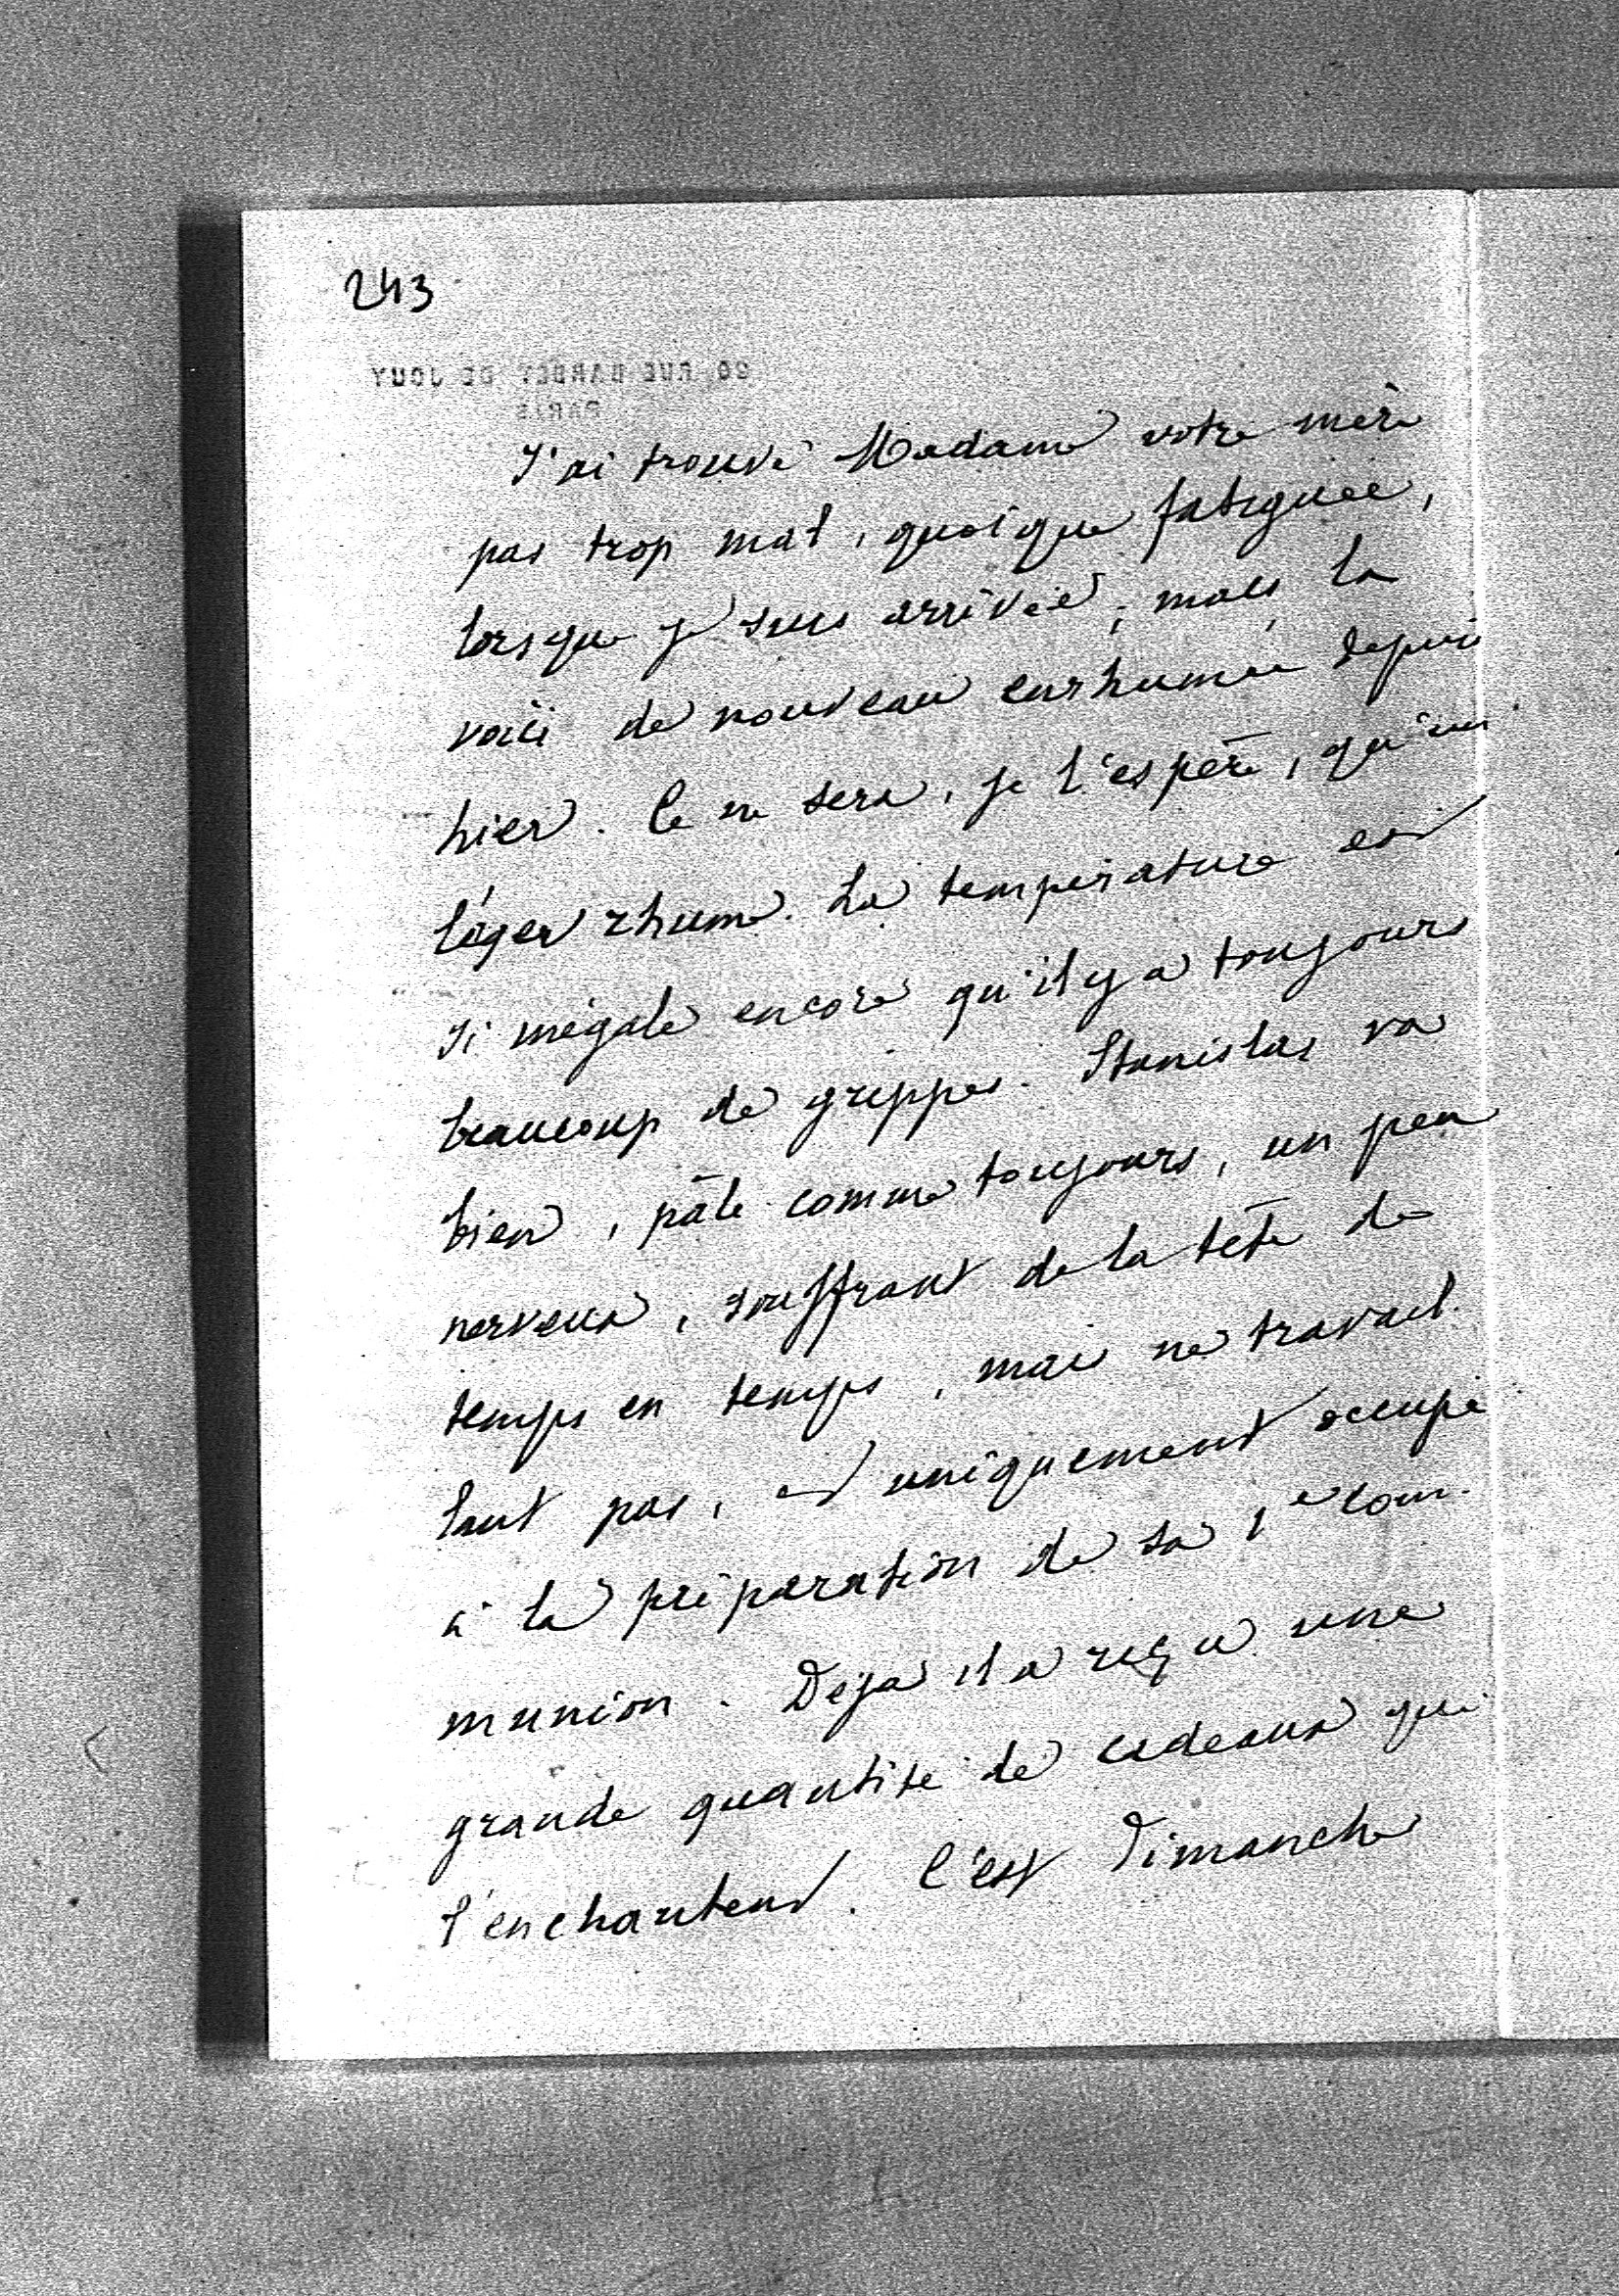 243
30 RUE BARBET DE JOUY
PARIS
J'ai trouvé Madame votre mère
pas trop mal, quoique fatiguée,
lorsque je suis arrivée ; mais la
voici de nouveau enrhumée depuis
hier. Ce ne sera, je l'espère, qu'un
léger rhume. La température est
si inégale encore qu'il y a toujours
beaucoup de grippes. Stanislas va
bien, pâle comme toujours, un peu
nerveux, souffrant de la tête de
temps en temps, mais ne travail-
lant pas, est uniquement occupé
à la préparation de sa 1e com-
munion. Déjà il a reçu une
grande quantité de cadeaux qui
l'enchantent. C'est Dimanche